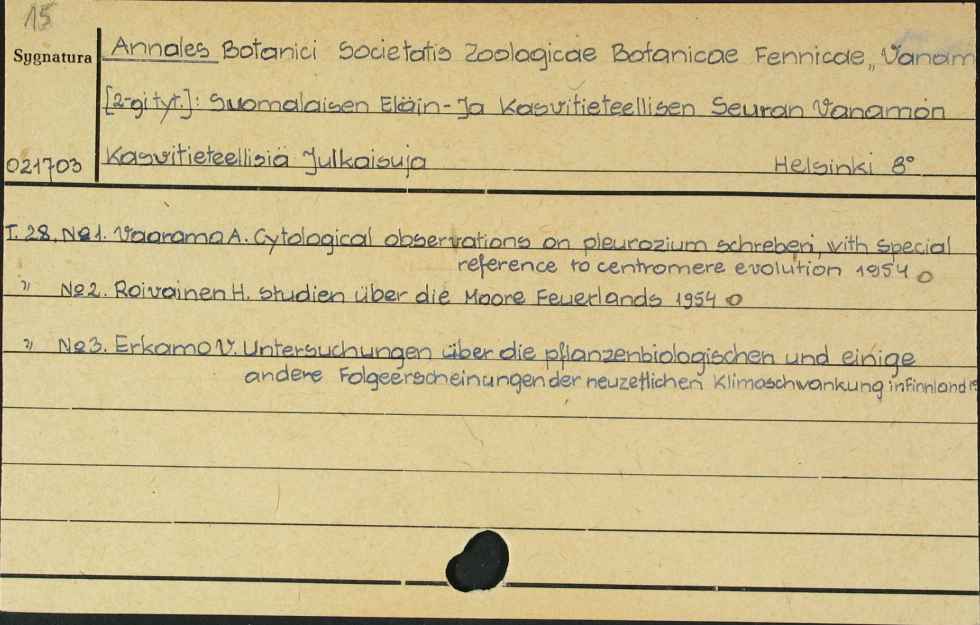 15
Sygnatura Annales Botanici Societatis Zoologicae Botanicae Fennicae „Vanam
[2-gi tyt.]: Suomalaisen Eläin-Ja Kasvitieteellisen Seuran Vanamon
021703 Kasvitieteellisiä Julkaisuja Helsinki 8°
T. 28. №1. Vaarama A. Cytological observations on pleurozium schreberi, vith special
reference to centromere evolution 1954 o
” №2. Roivainen H. Studien über die Moore Feuerlands 1954 o
” №3. Erkamo V. Untersuchungen über die pflanzenbiologischen und einige
andere Folgeerscheinungen der neuzetlichen Klimaschwankung in Finnland